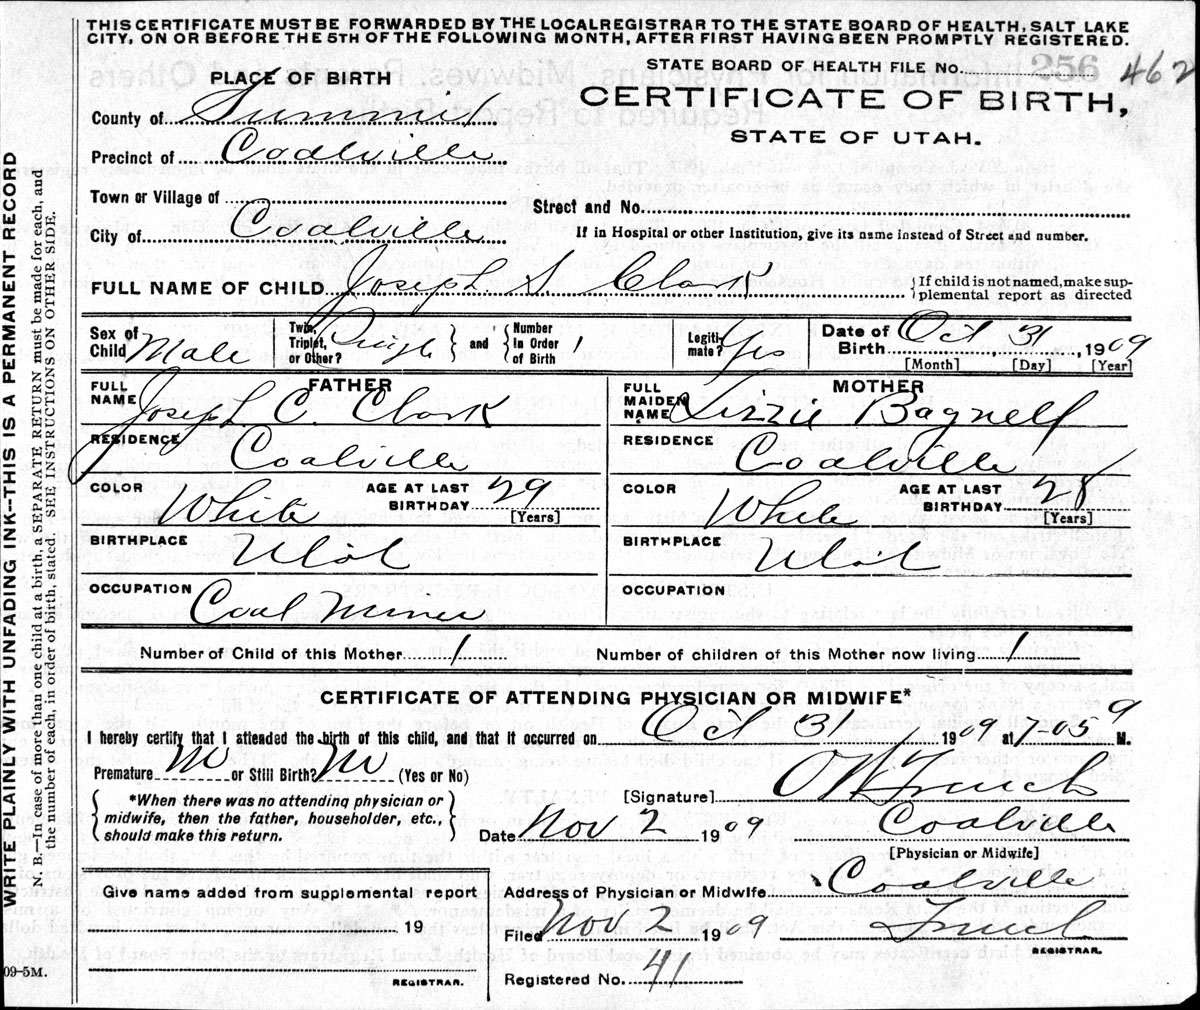 THIS CERTIFICATE MUST BE FORWARDED BY THE LOCAL REGISTRAR TO THE STATE BOARD OF HEALTH, SALT LAKE
CITY, ON OR BEFORE THE 5TH OF THE FOLLOWING MONTH, AFTER FIRST HAVING BEEN PROMPTLY REGISTERED.
PLACE OF BIRTH
STATE BOARD OF HEALTH FILE No. 256 462
County of Summit
CERTIFICATE OF BIRTH,
STATE OF UTAH.
Precinct of Coalville
Town or Village of
Street and No.
City of Coalville
If in Hospital or other Institution, give its name instead of Street and number.
FULL NAME OF CHILD Joseph S. Clark
If child is not named, make sup-
plemental report as directed
Sex of Child Male
Twin, Triplet, or Other? Single and Number In Order of Birth 1
Legiti-mate? Yes
Date of Birth Oct 31, 1909
[Month] [Day] [Year]
FATHER
FULL NAME Joseph C. Clark
MOTHER
FULL MAIDEN NAME Lizzie Bagnell
RESIDENCE Coalville
RESIDENCE Coalville
COLOR White AGE AT LAST BIRTHDAY 29 [Years]
COLOR White AGE AT LAST BIRTHDAY 28 [Years]
BIRTHPLACE Utah
BIRTHPLACE Utah
OCCUPATION Coal Miner
OCCUPATION
Number of Child of this Mother 1 Number of children of this Mother now living 1
CERTIFICATE OF ATTENDING PHYSICIAN OR MIDWIFE*
I hereby certify that I attended the birth of this child, and that it occurred on Oct 31 1909 at 7-05 M.
Premature No or Still Birth? No (Yes or No)
*When there was no attending physician or
midwife, then the father, householder, etc.,
should make this return.
[Signature]
Date Nov 2 1909
Coalville
[Physician or Midwife]
Give name added from supplemental report
19
REGISTRAR.
Address of Physician or Midwife Coalville
Filed Nov 2 1909
REGISTRAR.
Registered No. 41
WRITE PLAINLY WITH UNFADING INK--THIS IS A PERMANENT RECORD
N. B.—In case of more than one child at a birth, a SEPARATE RETURN must be made for each, and
the number of each, in order of birth, stated. SEE INSTRUCTIONS ON OTHER SIDE.
09-5M.